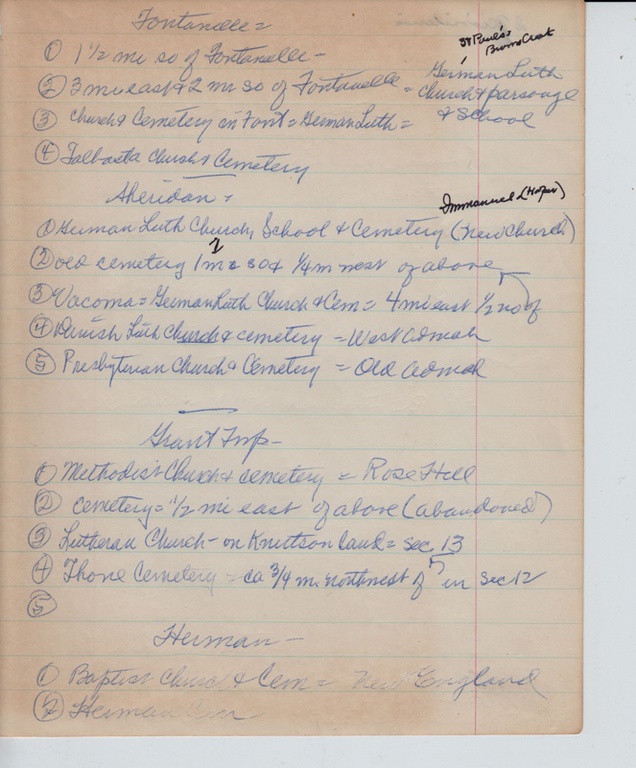 Fontanelle =
① 1 1/2 mi so of Fontanelle -
St Paul's
② 3 mi east & 2 mi so of Fontanelle = German Luth
church & parsonage
& School
③ Church & Cemetery in Font = German Luth =
④ Talbasta Church & Cemetery
Sheridan =
Immanuel (Hoper)
① German Luth Church, School & Cemetery (new church)
② old cemetery 1 mi so & 1/4 m west of above
③ Vacoma = German Luth Church & Cem = 4 mi east 1/2 no of
④ Danish Luth Church & cemetery = West Admah
⑤ Presbyterian Church & Cemetery = Old Admah
Grant Twp -
① Methodist Church & cemetery = Rose Hill
② cemetery = 1/2 mi east of above (abandoned)
③ Lutheran Church - on Knutson land = sec 13
④ Thone Cemetery = ca 3/4 mi northwest of " in sec 12
⑤
Herman -
① Baptist Church & Cem = New England
② Herman Cem